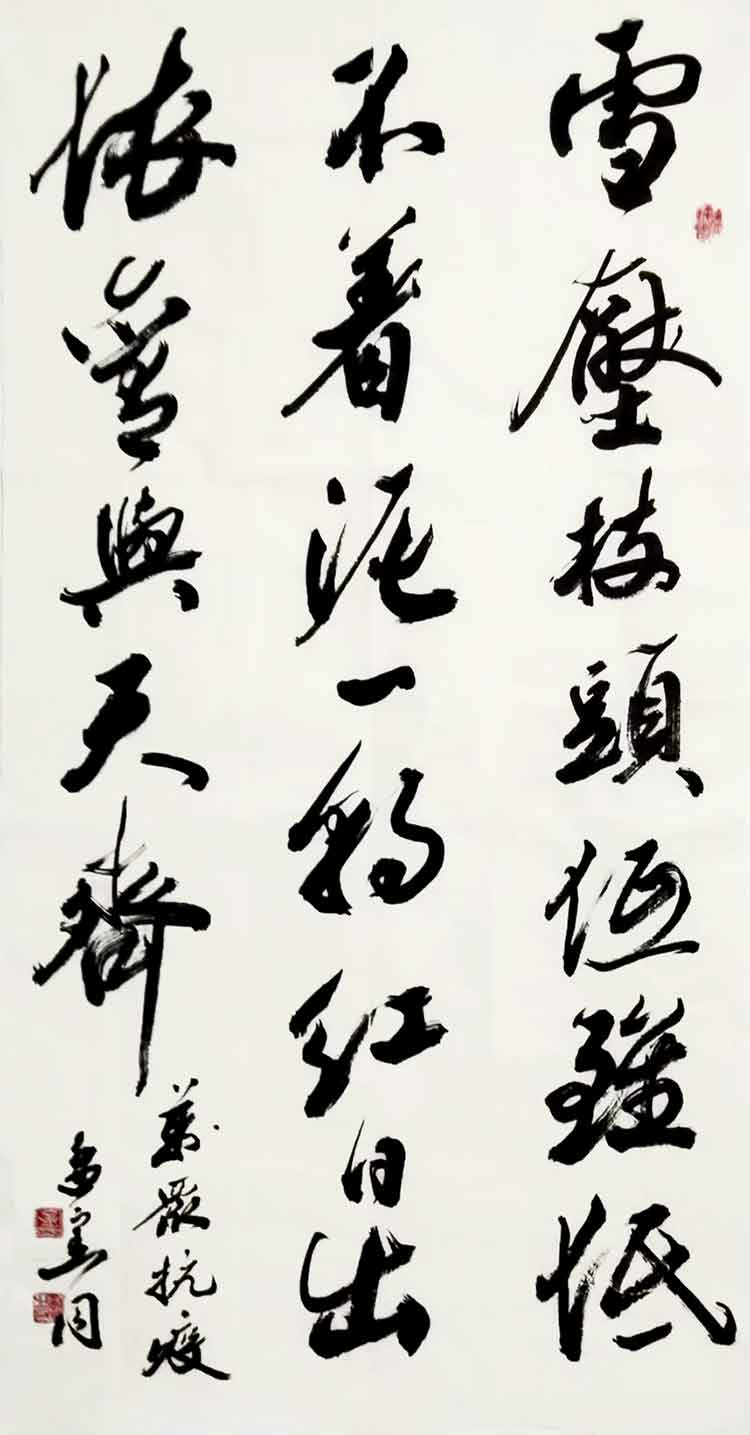 雪壓枝頭低雖低
不着泥一朝紅日出
依舊與天齊
萬眾抗疫